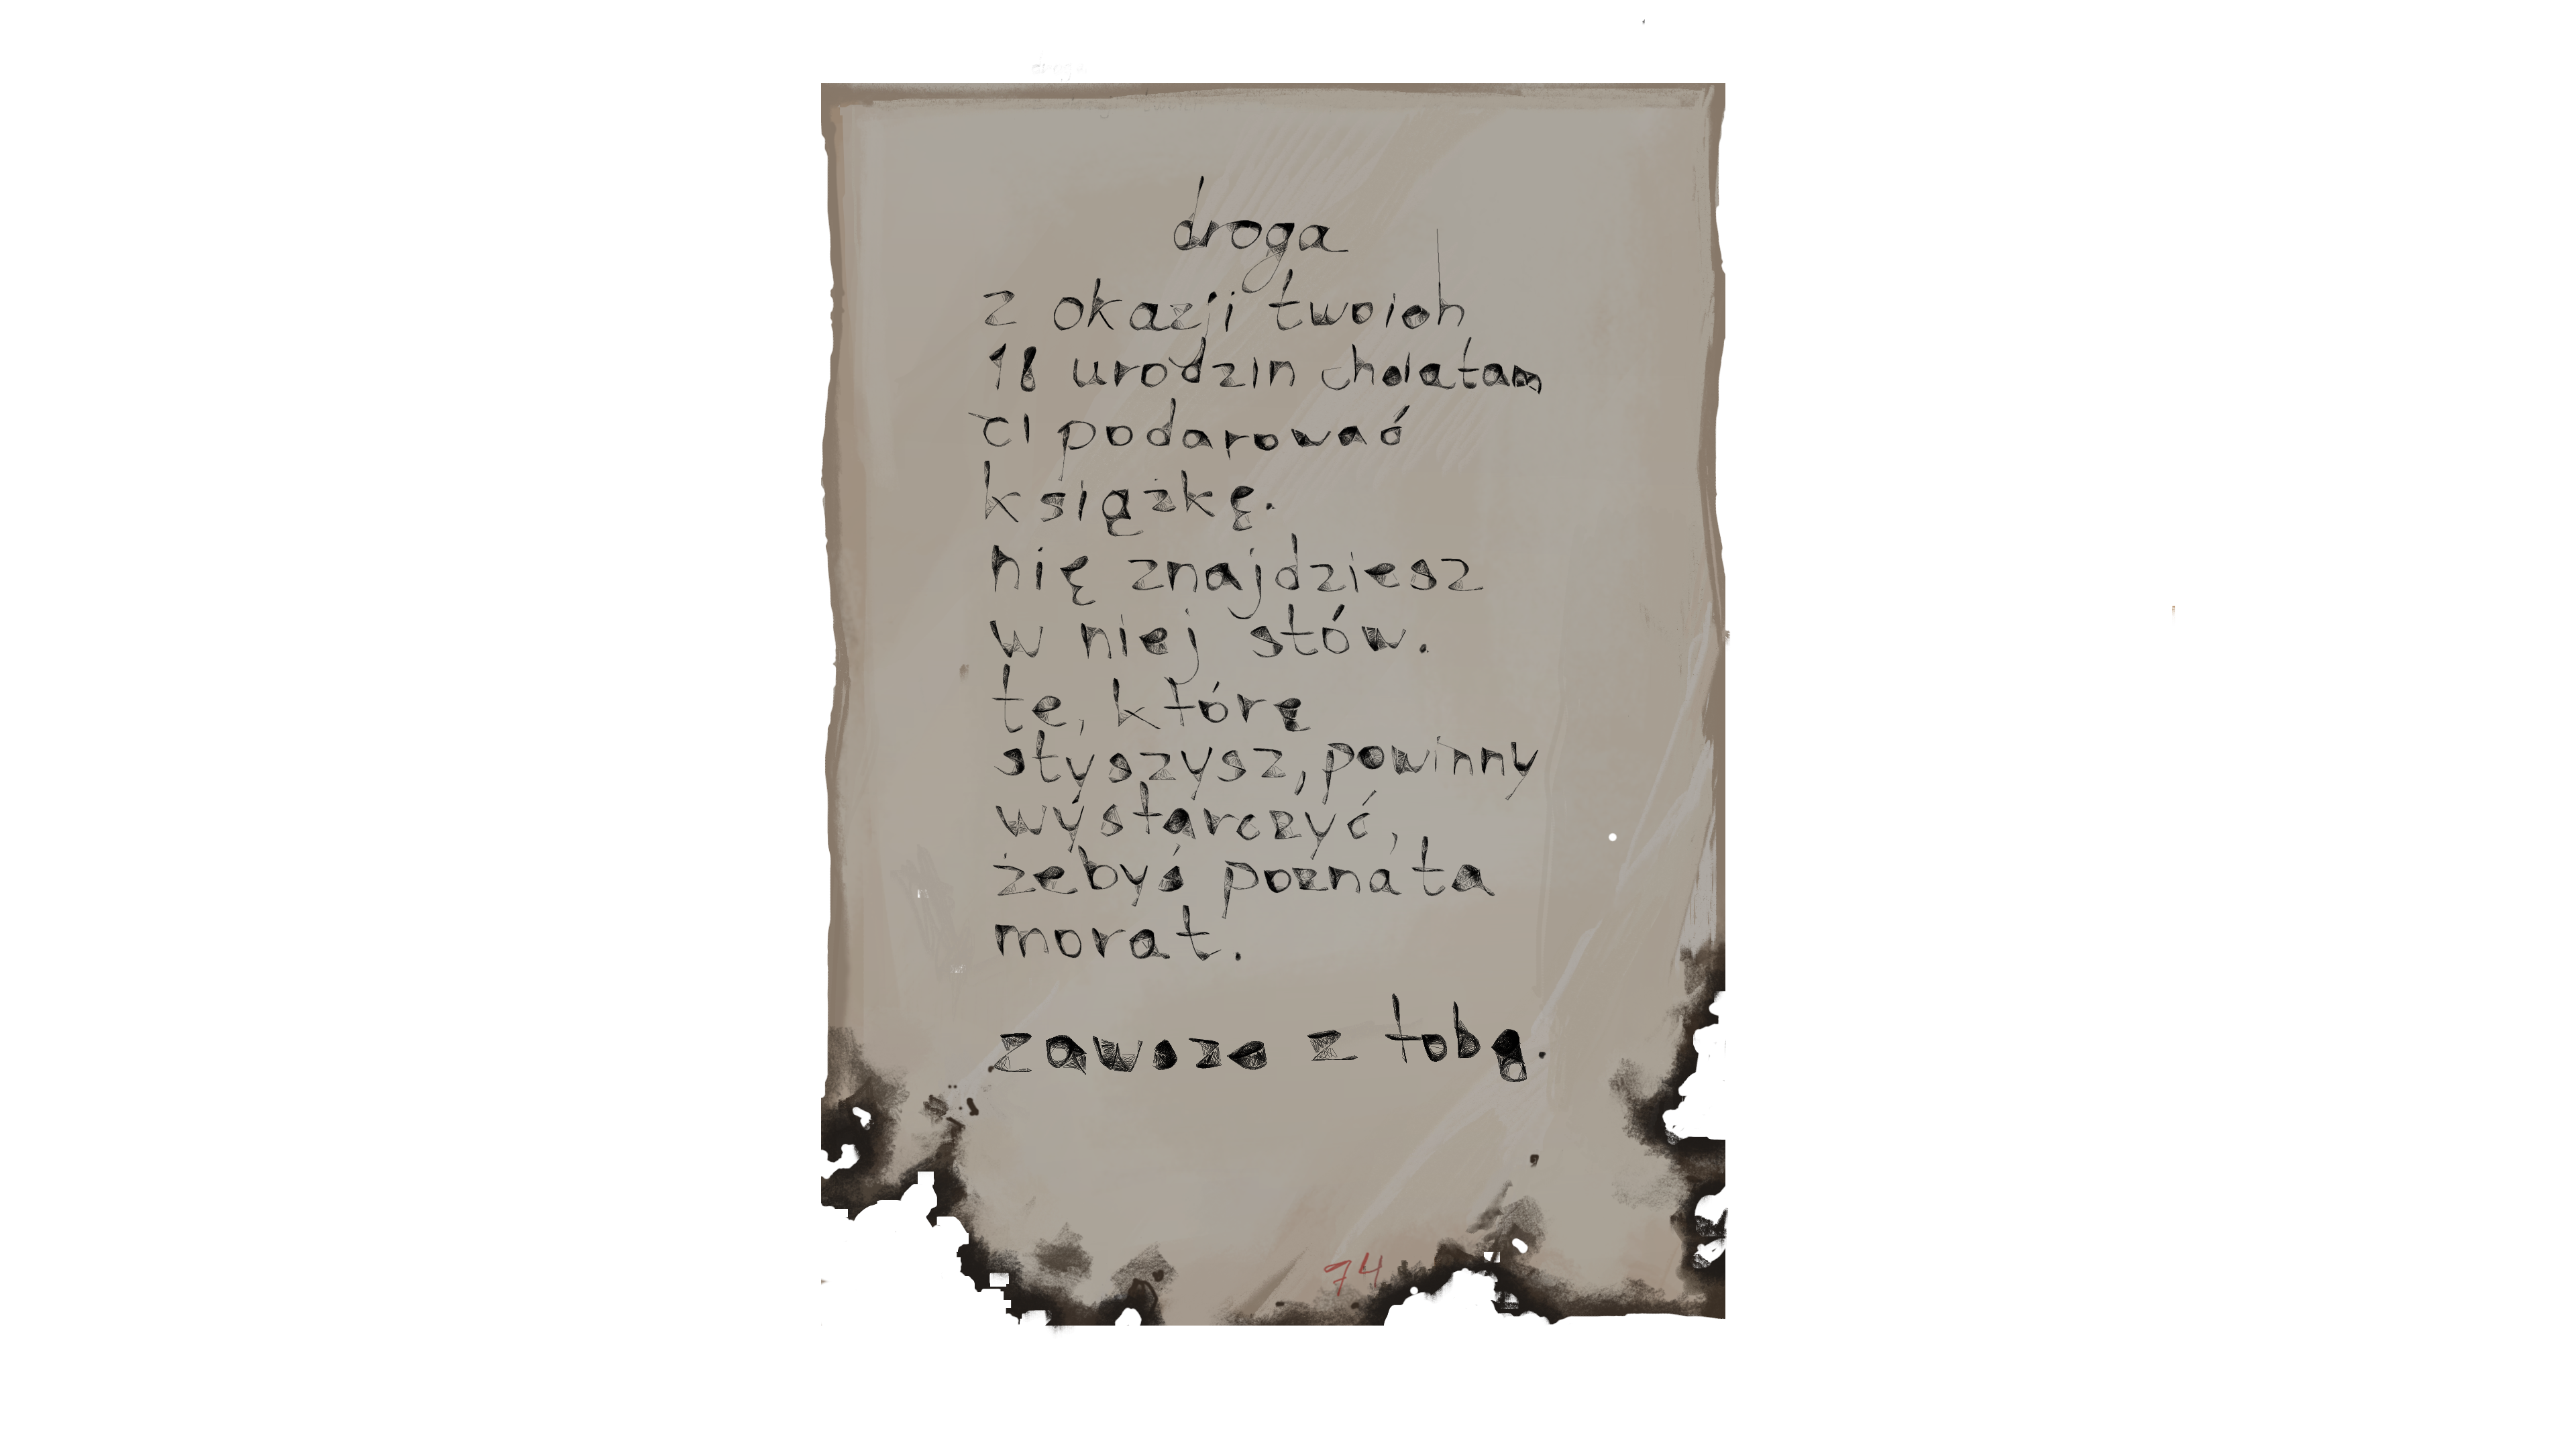 droga
z okazji twoich
18 urodzin chciałam
ci podarować
książkę.
nię znajdziesz
w niej słów.
te, którę
słyszysz, powinny
wystarczyć,
żebyś poznała
morał.
zawsze z tobą.
74